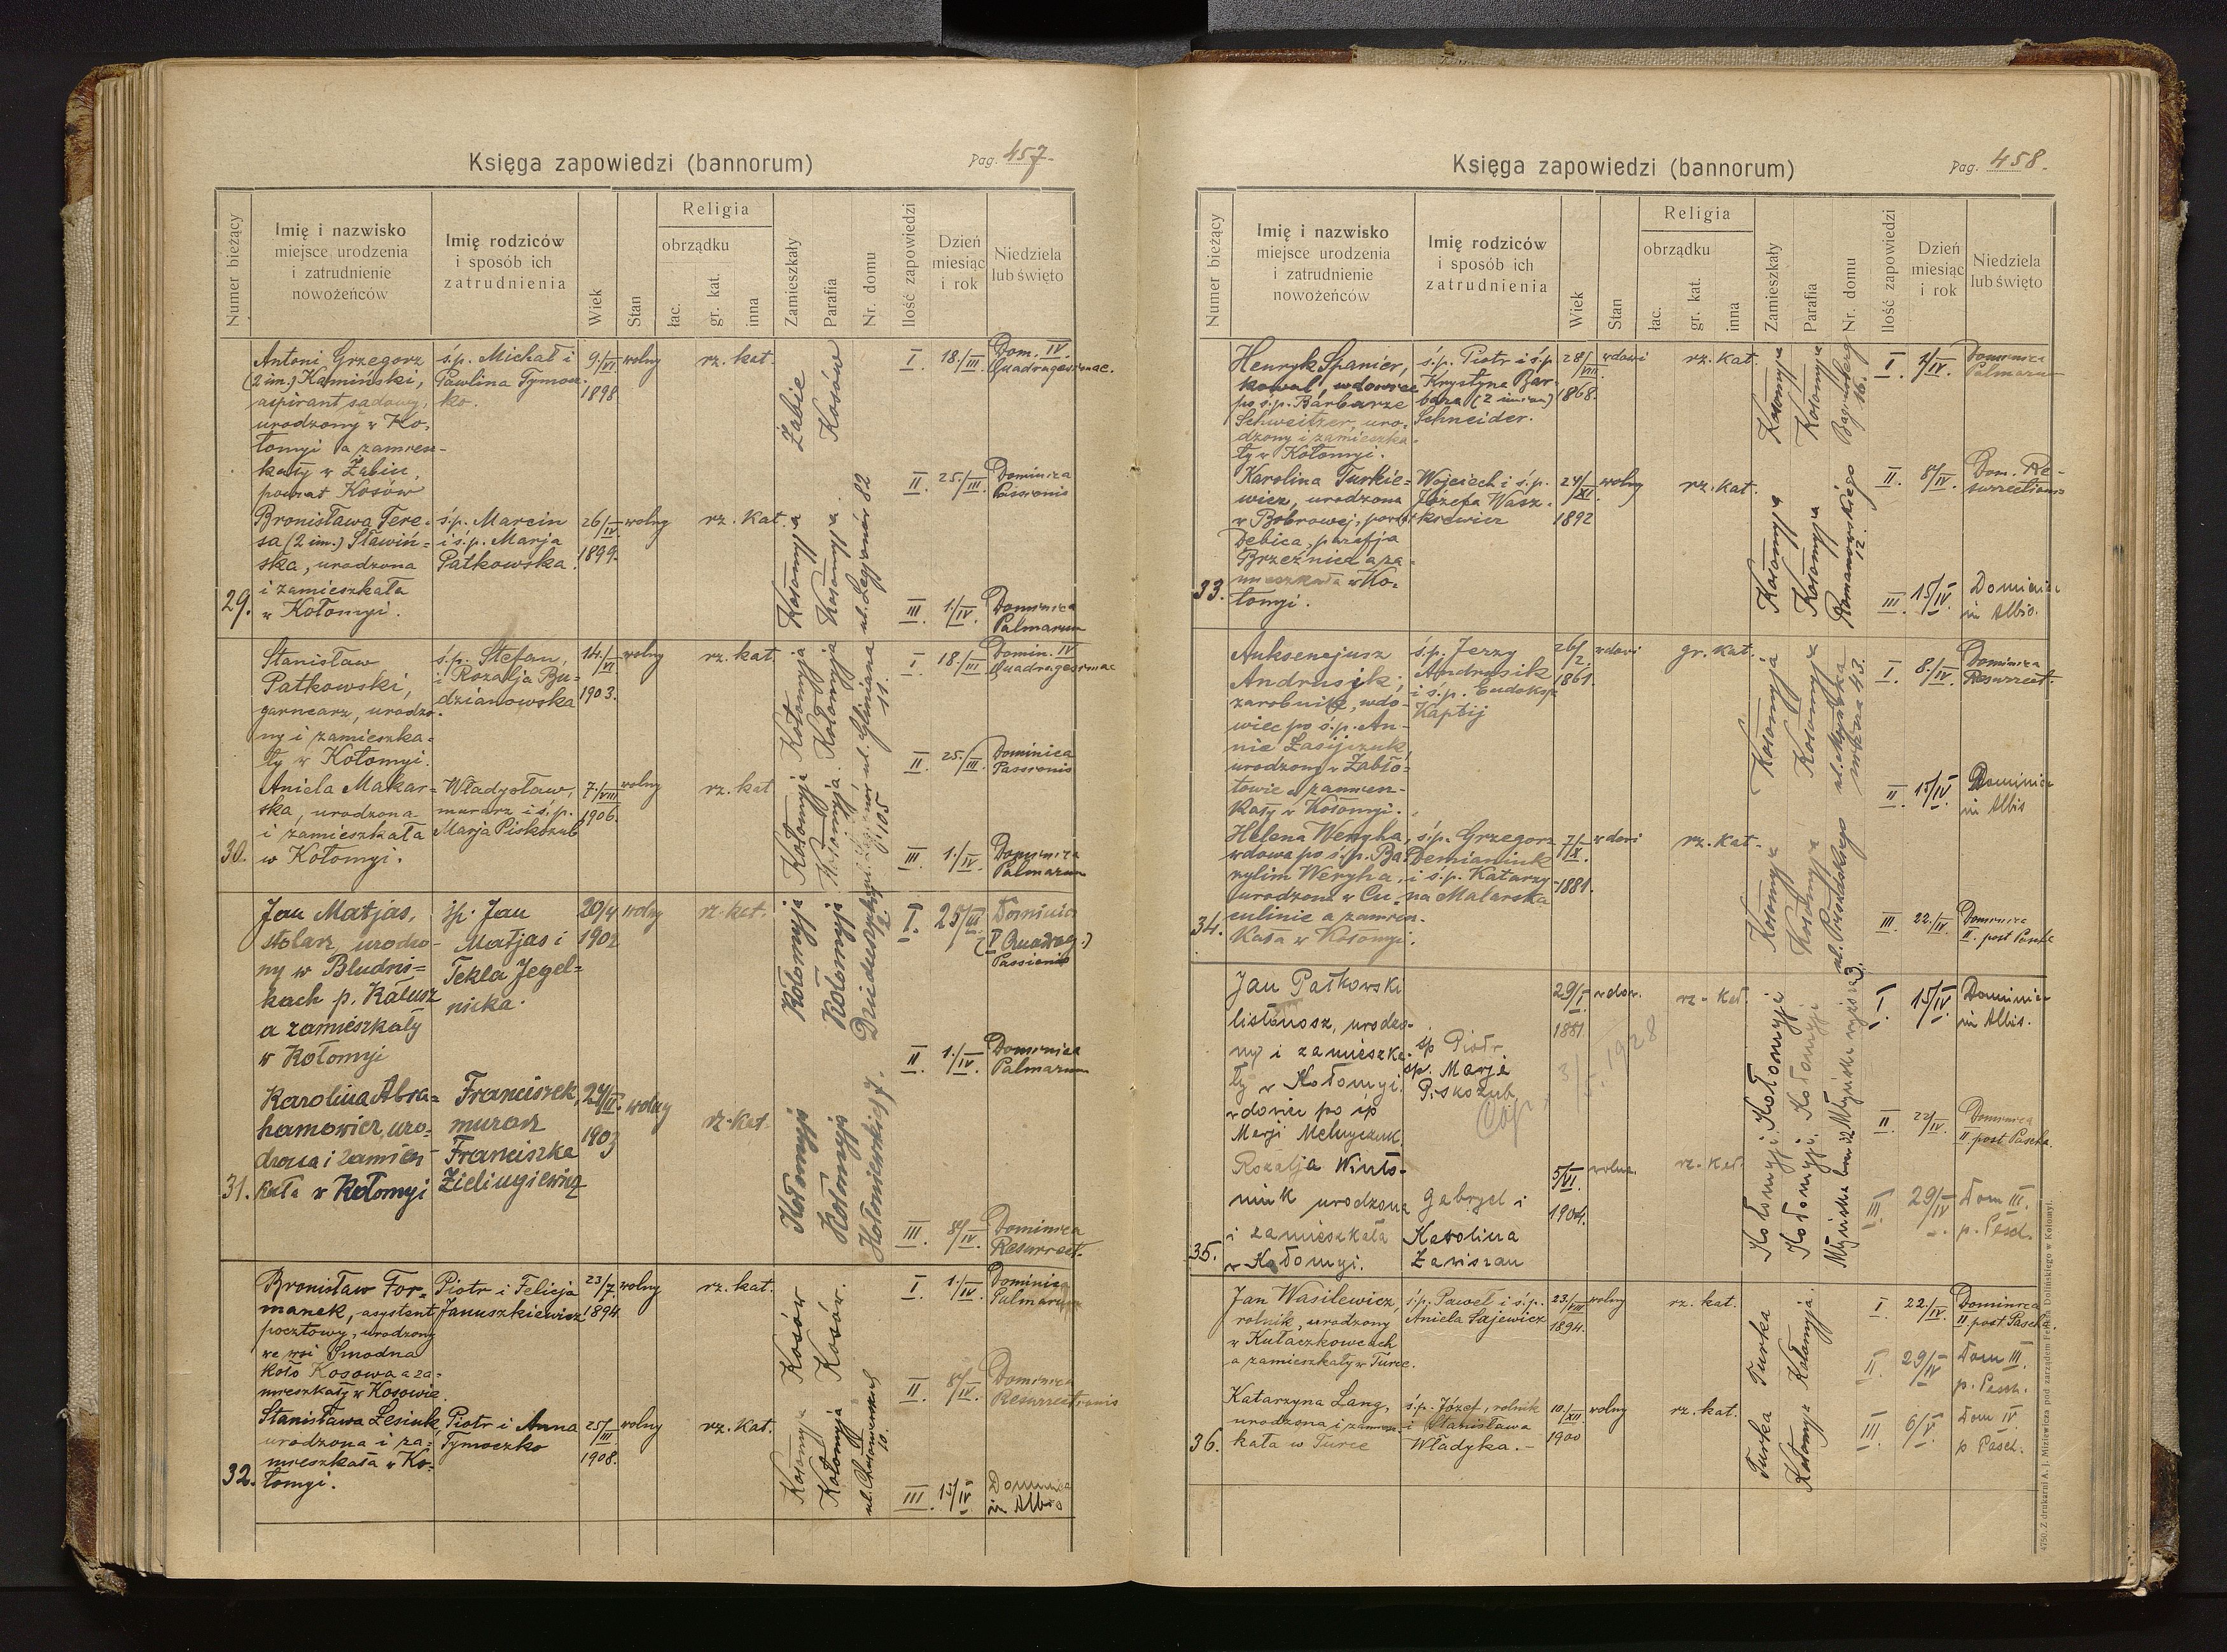 Księga zapowiedzi (bannorum)
Pag. 457.
Numer bieżący
Imię i nazwisko
miejsce urodzenia
i zatrudnienie
nowożeńców
Imię rodziców
i sposób ich
zatrudnienia
Wiek
Stan
Religia
obrządku
łac.
gr. kat.
inna
Zamieszkały
Parafia
Nr. domu
Ilość zapowiedzi
Dzień
miesiąc
i rok
Niedziela
lub święto
29.
Antoni Grzegorz
(2 im.) Kamiński,
aspirant sądowy,
urodzony w Ko-
łomyi a zamiesz-
kały w Żabiu,
powiat Kosów
ś.p. Michał i
Pawlina Tymocz-
ko.
9./VI
1898
wolny
rz. kat.
Żabie
Kosów
Bronisława Tere-
sa (2 im.) Sławiń-
ska, urodzona
i zamieszkała
w Kołomyi.
ś.p. Marcin
i ś.p. Marja
Patkowska.
26/IV
1899.
wolny
rz. kat.
Kołomyja
Kołomyja.
ul. Legjonów 82
I. 18./III Dom. IV.
Quadragesimae.
II. 25./III. Dominica
Passionis
III. 1./IV. Dominica
Palmarum
30.
Stanisław
Patkowski,
garncarz, urodzo-
ny i zamieszka-
ły w Kołomyi.
ś.p. Stefan,
i Rozalja Bu-
dzianowska.
14./VI
1903.
wolny
rz. kat.
Kołomyja
Kołomyja
ul. Gliniana
11.
Aniela Makar-
ska, urodzona
i zamieszkała
w Kołomyi.
Władysław,
murarz i ś.p.
Marja Piskozub
7./VIII
1906.
wolny
rz. kat
Kołomyja
Kołomyja.
105
I 18./III Domin. IV
Quadragesimae
II 25./III. Dominica
Passionis
III. 1./IV. Dominica
Palmarum
31.
Jan Matjas,
stolarz, urodzo-
ny w Bludni-
kach p. Kałusz
a zamieszkały
w Kołomyi
śp. Jan
Matjas i
Tekla Jegel-
nicka.
1902
wolny
rz. kat.
Kołomyja
Kołomyja
Karolina Abra-
hamowicz, uro-
dzona i zamiesz-
kała w Kołomyi
Franciszek,
murarz
Franciszka
1903
wolny
rz. kat.
Kołomyja
Kołomyja
I. 25/III Dominica
(V Quadrag.)
Passionis
II. 1./IV. Dominica
Palmarum
III. 8/IV. Dominica
Resurrect.
32.
Bronisław For-
manek, asystent
pocztowy, urodzony
we wsi Smodna
koło Kosowa a za-
mieszkały w Kosowie.
Piotr i Felicja
Januszkiewicz
23/7.
1894.
wolny
rz. kat.
Kosów
Kosów.
Stanisława Lesiuk,
urodzona i za-
mieszkała w Ko-
łomyi.
Piotr i Anna
Tymoczko
25/III
1908.
wolny
rz. kat.
Kołomyja
Kołomyja
10.
I. 1./IV. Dominica
Palmarum
II. 8/IV. Dominica
Resurrectionis
III. 15/IV. Dominica
in Albis
Księga zapowiedzi (bannorum)
Pag. 458.
Numer bieżący
Imię i nazwisko
miejsce urodzenia
i zatrudnienie
nowożeńców
Imię rodziców
i sposób ich
zatrudnienia
Wiek
Stan
Religia
obrządku
łac.
gr. kat.
inna
Zamieszkały
Parafia
Nr. domu
Ilość zapowiedzi
Dzień
miesiąc
i rok
Niedziela
lub święto
33.
Henryk Spanier,
kowal, wdowiec
po ś.p. Barbarze
Schweitzer, uro-
dzony i zamieszka-
ły w Kołomyi.
ś.p. Piotr i ś.p.
Krystyna Bar-
bara (2 imion)
Schneider.
28/VIII.
1868.
wdowi
rz. kat.
Kołomyja
Kołomyja
16.
Karolina Turkie-
wicz, urodzona
w Bobrowej, powiat
Dębica, parafja
Brzeźnica a za-
mieszkała w Ko-
łomyi.
Wojciech i ś.p.
Józefa Wasz-
kiewicz
24/XI.
1892
wolny
rz. kat.
Kołomyja
Kołomyja
Romanowskiego
12.
I. 1/IV. Dominica
Palmarum
II. 8/IV. Dom. Re-
surrectionis
III. 15/IV. Dominica
in Albis.
34.
Auksencjusz
Andrusik,
zarobnik, wdo-
wiec po ś.p. An-
nie Łasijczuk,
urodzony w Zabło-
towie a zamiesz-
kały w Kołomyi.
ś.p. Jerzy
Andrusik
i ś.p. Eudoksja
Kaptij
26/2.
1861.
wdowi
gr. kat.
Kołomyja
Kołomyja
43.
Helena Weryha,
wdowa po ś.p. Ba-
zylim Weryha,
urodzona w Cu-
culinie a zamiesz-
kała w Kołomyi.
ś.p. Grzegorz
Demianiuk
i ś.p. Katarzy-
na Malarska
7/X.
1881.
wdowi
rz. kat.
Kołomyja
Kołomyja
I. 8./IV. Dominica
Resurrect.
II 15/IV. Dominica
in Albis
III. 22./IV. Dominica
II. post Pascha
35.
Jan Patkowski
listonosz, urodzo-
ny i zamieszka-
ły w Kołomyi.
wdowiec po śp
Marji Melnyczuk
śp Piotr
śp. Marja
Piskozub
29/I.
1881.
wdow.
rz. kat.
Kołomyji
Kołomyji
Cop. 3/5. 1928
Rozalja Winto-
niuk urodzona
i zamieszkała
w Kołomyi.
Gabryel i
Karolina
Zawiszan
5/VI.
1904.
wolna
rz. kat.
Kołomyji
Kołomyji
I. 15/IV. Dominica
in Albis.
II 22/IV. Dominica
II post Pascha.
III 29/IV Dom III.
p. Pasch.
36.
Jan Wasilewicz,
rolnik, urodzony
w Kułaczkowcach
a zamieszkały w Turce.
ś.p. Paweł i ś.p.
Aniela Łajewicz
23./VIII
1894.
wolny
rz. kat.
Turka
Kołomyja.
Katarzyna Lang,
urodzona i zamiesz-
kała w Turce
ś.p. Józef, rolnik
i Stanisława
Władyka.-
10./XII
1900
wolny
rz. kat.
Turka
Kołomyja
I 22./IV. Dominica
II post Pascha.
II 29/IV Dom III.
p. Pasch.
III 6/V. Dom IV
p Pasch.
4750. Z drukarni A. J. Miziewicza pod zarządem Feliksa Dolińskiego w Kołomyi.